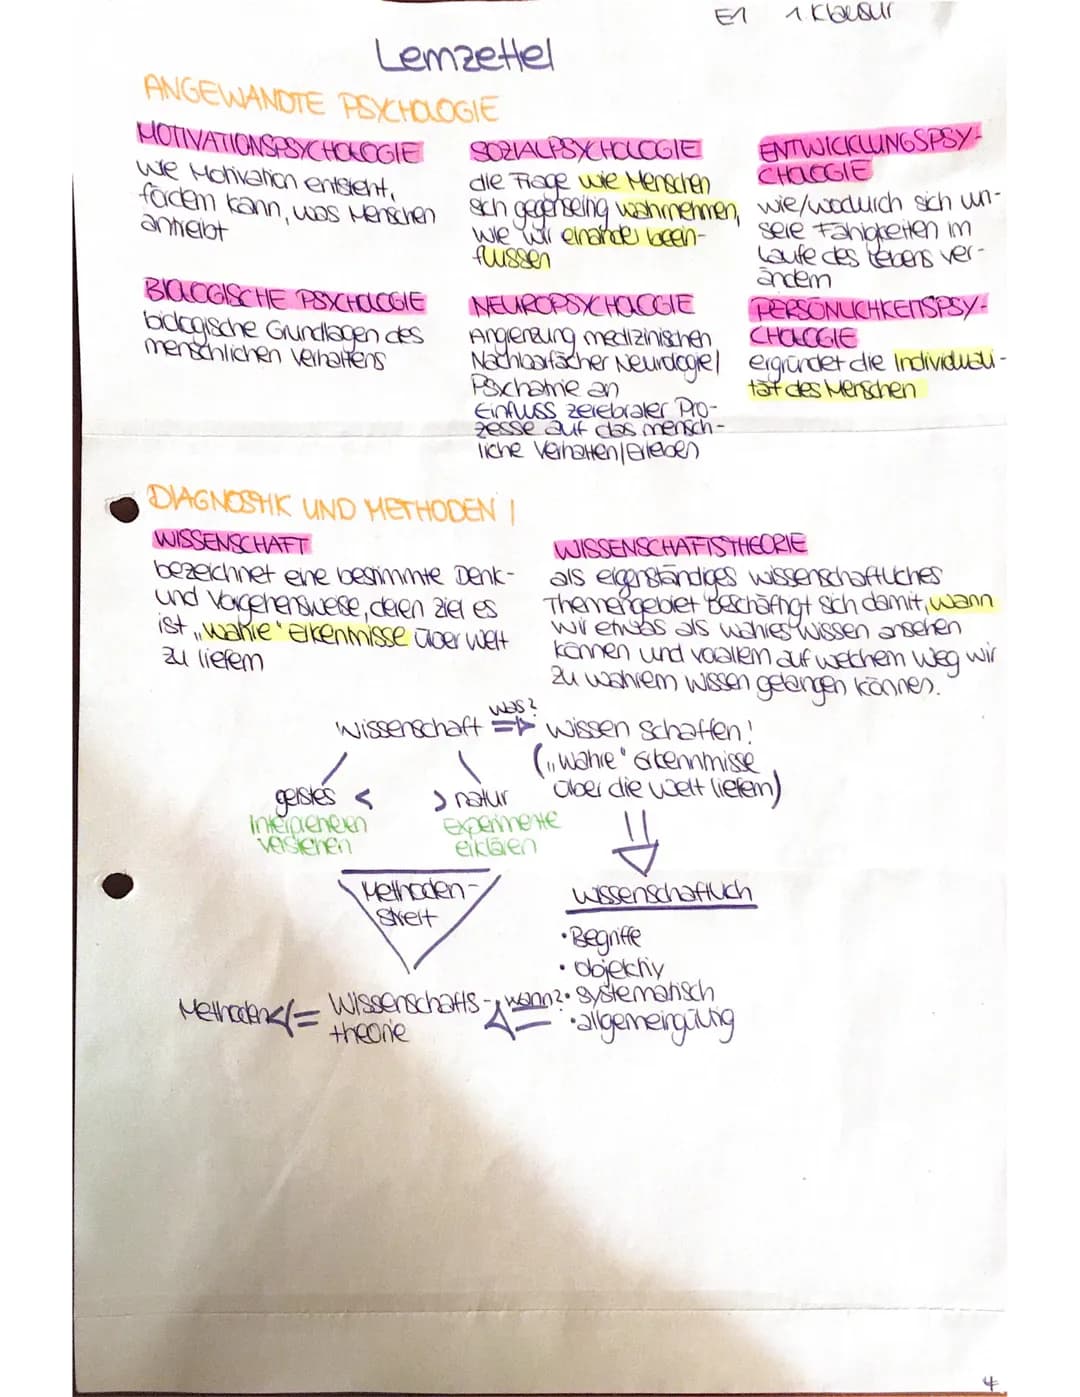 E1 1. Klausur
Lernzettel
ANGEWANDTE PSYCHOLOGIE
MOTIVATIONSPSYCHOLOGIE
wie Motivation entsteht,
fördern kann, was Menschen
antreibt
SOZIALPSYCHOLOGIE
die Frage wie Menschen
sich gegenseitig wahrnehmen,
wie wir einander beein-
flussen
ENTWICKLUNGSPSY-
CHOLOGIE
wie/wodurch sich un-
sere Fähigkeiten im
Laufe des Lebens ver-
ändern
BIOLOGISCHE PSYCHOLOGIE
biologische Grundlagen des
menschlichen Verhaltens
NEUROPSYCHOLOGIE
Angrenzung medizinischen
Nachbarfächer Neurologie/
Psychatrie an
Einfluss zerebraler Pro-
zesse auf das mensch-
liche Verhalten/Erleben
PERSÖNLICHKEITSPSY-
CHOLOGIE
ergründet die Individuali-
tät des Menschen
DIAGNOSTIK UND METHODEN I
WISSENSCHAFT
bezeichnet eine bestimmte Denk-
und Vorgehensweise, deren Ziel es
ist „wahre" Erkenntnisse über Welt
zu liefern
WISSENSCHAFTSTHEORIE
als eigenständiges wissenschaftliches
Themengebiet beschäftigt sich damit, wann
wir etwas als wahres Wissen ansehen
können und vorallem auf welchem Weg wir
zu wahrem Wissen gelangen können.
was?
Wissenschaft => Wissen schaffen!
(„wahre" Erkenntnisse
über die Welt liefern)
geistes < > natur
Interpretieren
verstehen
Experimente
erklären
Methoden-
streit
wissenschaftlich
• Begriffe
• objektiv
• systematisch
• allgemeingültig
wann?
Wissenschafts-
theorie
Methoden
4